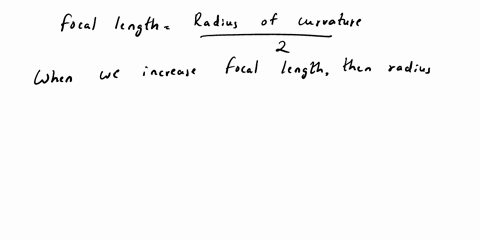 focal length = Radius of curvature / 2
When we increase focal length, then radius